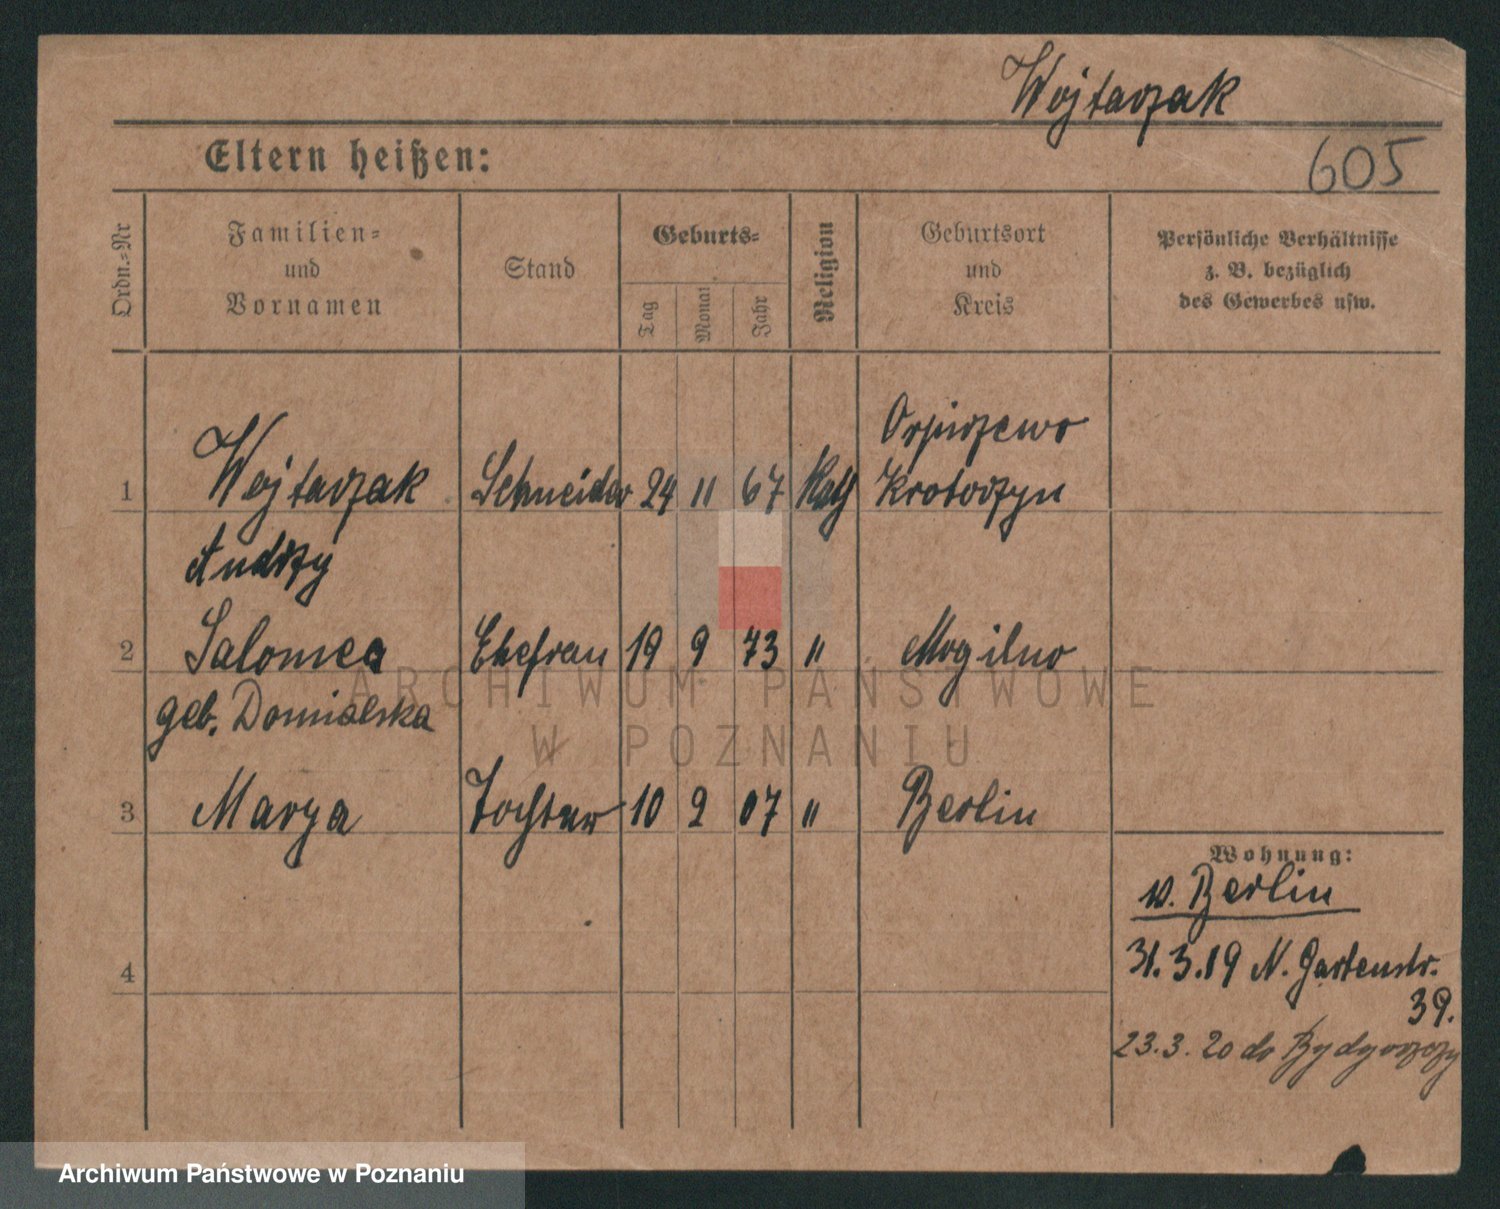 Wojtarzak
605
Eltern heißen:
Ordn.=Nr
Familien=
und
Vornamen
Stand
Geburts=
Tag
Monat
Jahr
Religion
Geburtsort
und
Kreis
Persönliche Verhältnisse
z. B. bezüglich
des Gewerbes usw.
1 Wojtarzak Schneider 24 11 67 Kath Orpiszewo
Krotoszyn
Andrzy
2 Salomea Ehefrau 19 9 73 " Mogilno
geb. Domialska
3 Marya Tochter 10 2 07 " Berlin
4
Wohnung:
v. Berlin
31.3.19 N. Gartenstr.
39.
23.3.20 do Bydgoszczy
ARCHIWUM PAŃSTWOWE
W POZNANIU
Archiwum Państwowe w Poznaniu